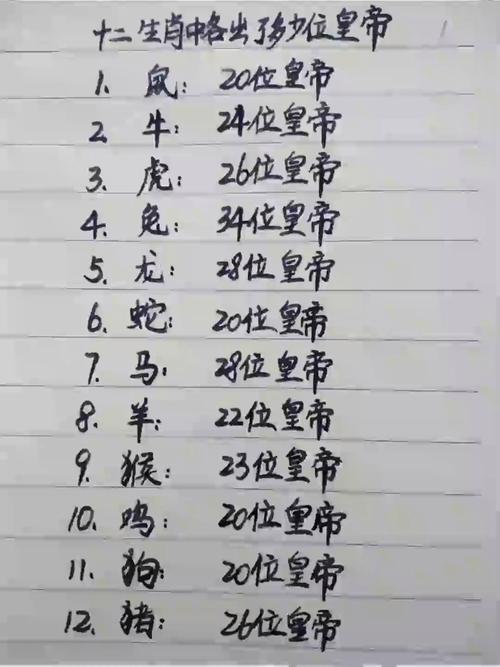 十二生肖中各出了多少位皇帝
1. 鼠: 20位皇帝
2. 牛: 24位皇帝
3. 虎: 26位皇帝
4. 兔: 34位皇帝
5. 龙: 28位皇帝
6. 蛇: 20位皇帝
7. 马: 28位皇帝
8. 羊: 22位皇帝
9. 猴: 23位皇帝
10. 鸡: 20位皇帝
11. 狗: 20位皇帝
12. 猪: 26位皇帝